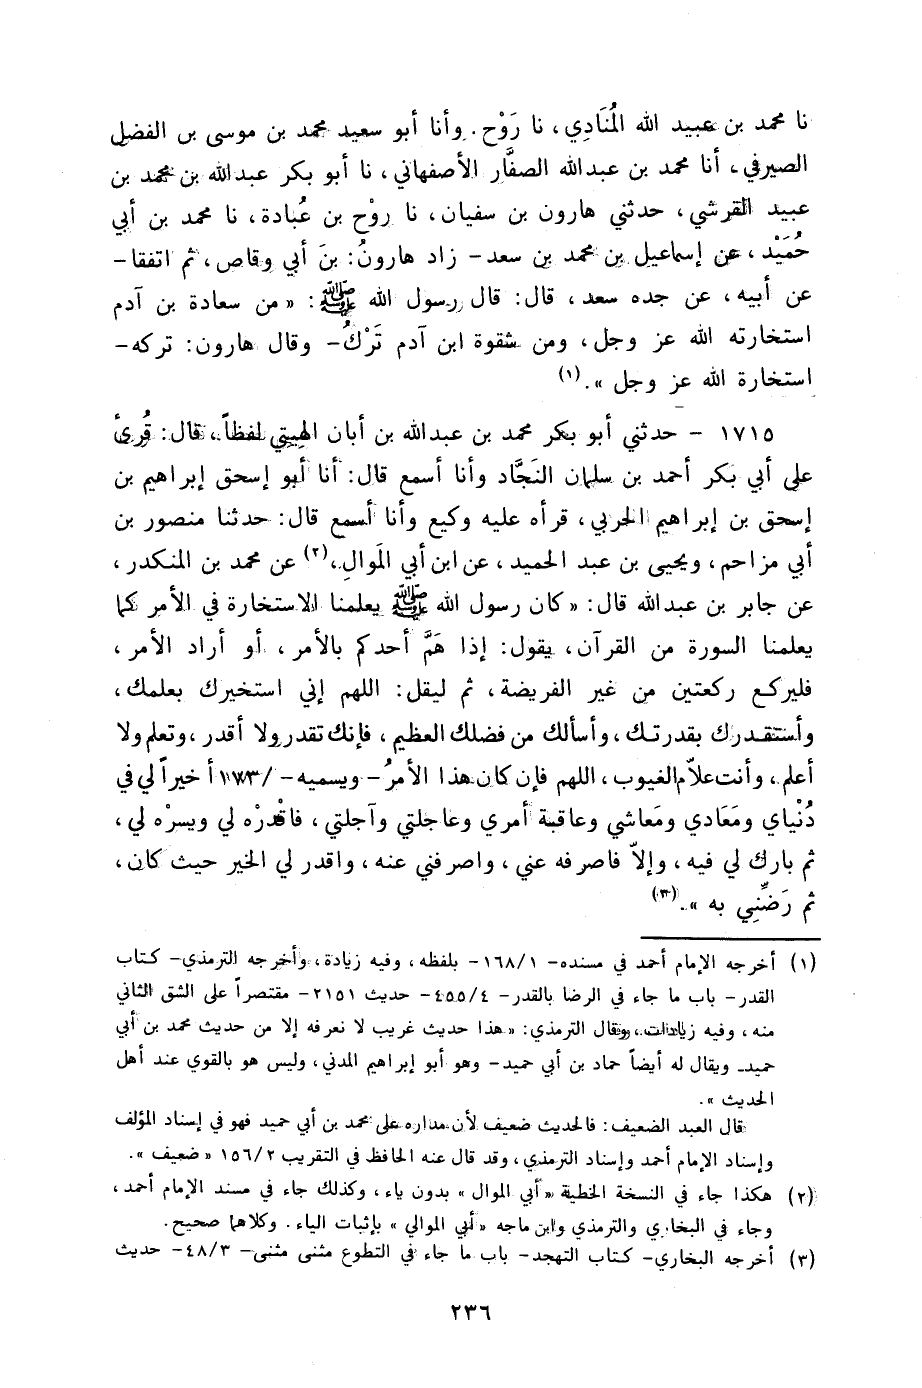 نا محمد بن عبيد الله المُنَادِي، نا رَوْح. وأنا أبو سعيد محمد بن موسى بن الفضل
الصيرفي، أنا محمد بن عبدالله الصفَّار الأصفهاني، نا أبو بكر عبدالله بن محمد بن
عبيد القرشي، حدثني هارون بن سفيان، نا روْح بن عُبادة، نا محمد بن أبي
حُمَيْد، عن إسماعيل بن محمد بن سعد - زاد هارونُ: بنَ أبي وقاص، ثم اتفقا -
عن أبيه، عن جده سعد، قال: قال رسول الله ﷺ: « من سعادة بن آدم
استخارته الله عز وجل، ومن شقوة ابن آدم تَرْكُ - وقال هارون: تركه -
استخارة الله عز وجل ».(١)
١٧١٥ - حدثني أبو بكر محمد بن عبدالله بن أبان الهِيتي لفظاً، قال: قُرئ
على أبي بكر أحمد بن سلمان النَجَّاد وأنا أسمع قال: أنا أبو إسحق إبراهيم بن
إسحق بن إبراهيم الحربي، قرأه عليه وكيع وأنا أسمع قال: حدثنا منصور بن
أبي مزاحم، ويحيى بن عبد الحميد، عن ابن أبي المَوالِ،(٢) عن محمد بن المنكدر،
عن جابر بن عبدالله قال: « كان رسول الله ﷺ يعلمنا الاستخارة في الأمر كما
يعلمنا السورة من القرآن، يقول: إذا هَمَّ أحدكم بالأمر، أو أراد الأمر،
فليركع ركعتين من غير الفريضة، ثم ليقل: اللهم إني استخيرك بعلمك،
وأستقدرك بقدرتك، وأسألك من فضلك العظيم، فإنك تقدر ولا أقدر، وتعلم ولا
أعلم، وأنت علاّم الغيوب، اللهم فإن كان هذا الأمرُ - ويسميه - /١٧٣ أ خيراً لي في
دُنْياي ومَعَادي ومَعاشي وعاقبة أمري وعاجلتي وآجلتي، فاقْدرْه لي ويسرْه لي،
ثم بارك لي فيه، وإلاّ فاصرفه عني، واصرفني عنه، واقدر لي الخير حيث كان،
ثم رَضِّنِي به ».(٣)
(١) أخرجه الإمام أحمد في مسنده - ١/ ١٦٨ - بلفظه، وفيه زيادة، وأخرجه الترمذي - كتاب
القدر - باب ما جاء في الرضا بالقدر - ٤/ ٤٥٥ - حديث ٢١٥١ - مقتصراً على الشق الثاني
منه، وفيه زيادات، وقال الترمذي: « هذا حديث غريب لا نعرفه إلا من حديث محمد بن أبي
حميد - ويقال له أيضاً حماد بن أبي حميد - وهو أبو إبراهيم المدني، وليس هو بالقوي عند أهل
الحديث ».
قال العبد الضعيف: فالحديث ضعيف لأن مداره على محمد بن أبي حميد فهو في إسناد المؤلف
وإسناد الإمام أحمد وإسناد الترمذي، وقد قال عنه الحافظ في التقريب ٢/ ١٥٦ « ضعيف ».
(٢) هكذا جاء في النسخة الخطية « أبي الموال » بدون ياء، وكذلك جاء في مسند الإمام أحمد،
وجاء في البخاري والترمذي وابن ماجه « أبي الموالي » بإثبات الياء. وكلاهما صحيح.
(٣) أخرجه البخاري - كتاب التهجد - باب ما جاء في التطوع مثنى مثنى - ٣/ ٤٨ - حديث
٢٣٦